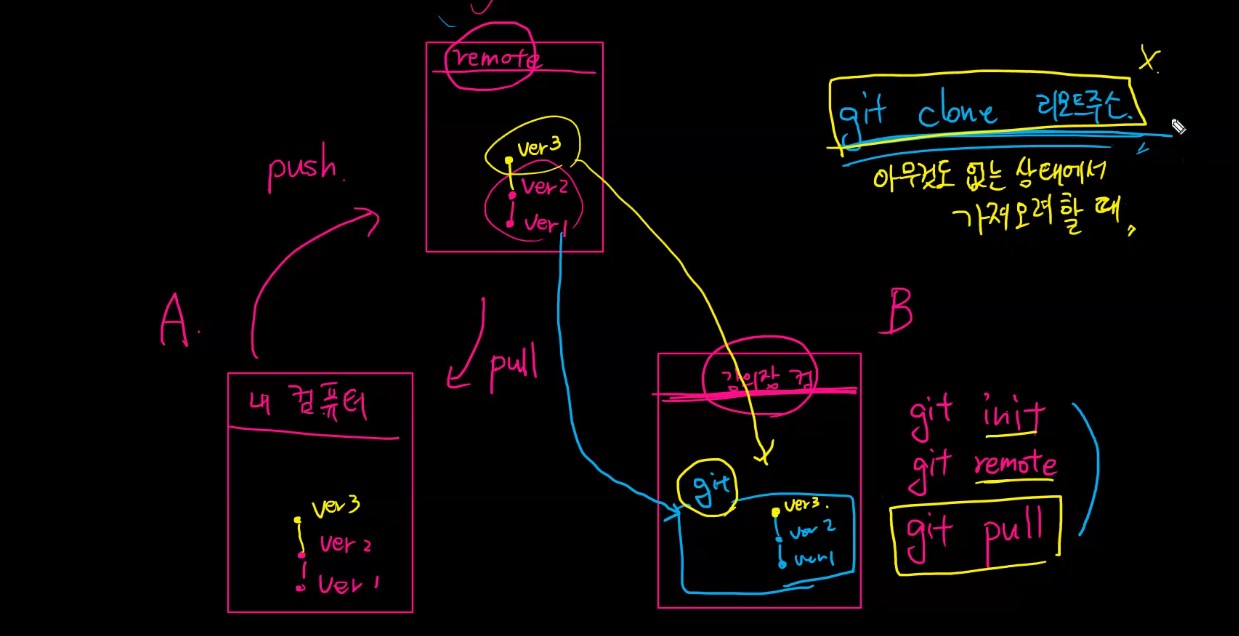 remote
ver3
ver2
ver1
push.
pull
A.
내 컴퓨터
ver3
ver2
ver1
git clone 리모트주소.
X.
아무것도 없는 상태에서
가져오려 할 때,,
B
강의장 컴
git
ver3.
ver2
ver1
git init
git remote
git pull